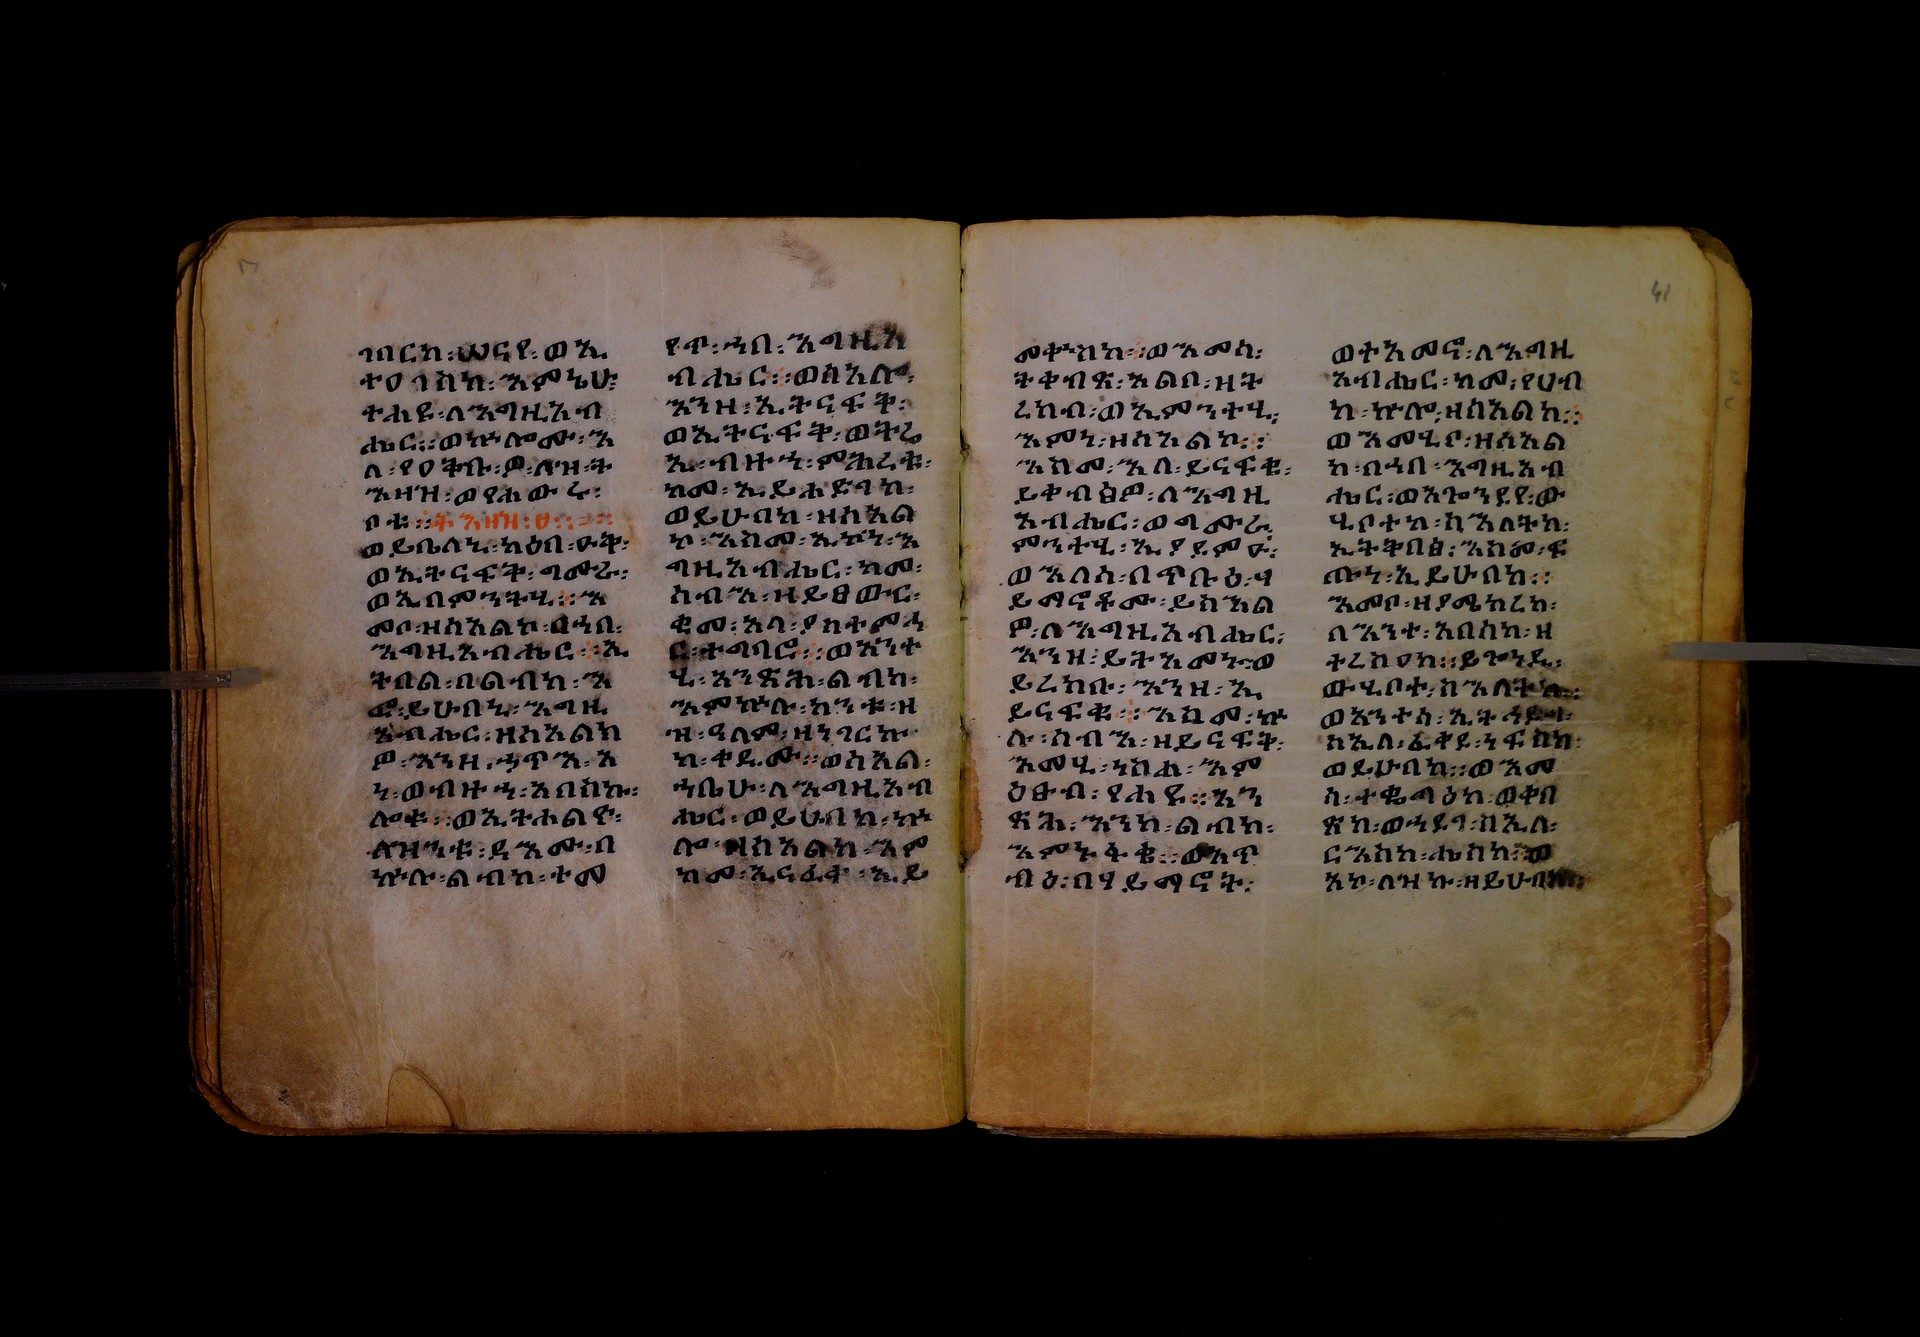 ገባርከ፡ሠናየ፡ወኢ
ተዐገስከ፡እምኔሁ፡
ተሐይ፡ለእግዚአብ
ሔር፡፡ወኵሎሙ፡እ
ለ፡የዐቅቡ፡ዎ፡ለዛ፡ት
እዛዝ፡ወየሐውሩ፡
ቦቱ፡፡ትእዛዝ፡፱፡፡
ወይቤለኒ፡ከዕበ፡ዑቅ፡
ወኢትናፍቅ፡ግሙራ፡
ወኢበምንትኒ፡፡እ
መቦ፡ዘስእልከ፡በኀበ፡
እግዚአብሔር፡፡ኢ
ትበል፡በልብከ፡እ
ፎ፡ይሁበኒ፡እግዚ
አብሔር፡ዘስእልክ
ዎ፡እንዘ፡ኃጥእ፡አ
ነ፡ወብዙኅ፡አበስኩ፡
ሎቱ፡፡ወኢትሐልዮ፡
ለዝንቱ፡ዳእሙ፡በ
ኵሉ፡ልብከ፡ተመ
የጥ፡ኀበ፡እግዚአ
ብሔር፡፡ወስአሎ፡
እንዘ፡ኢትናፍቅ፡
ወኢትናፍቅ፡ወትሬ
ኢ፡ብዙኅ፡ምሕረቱ፡
ከመ፡ኢይሐድገከ፡
ወይሁበከ፡ዘስአል
ከ፡እስመ፡ኢኮነ፡እ
ግዚአብሔር፡ከመ፡
ሰብእ፡ዘይፀውር፡
ቂመ፡አላ፡ያስተምሕ
ር፡ተግባሮ፡፡ወአንተ
ኒ፡አንጽሕ፡ልብከ፡
እምኵሉ፡ከንቱ፡ዘ
ዝ፡ዓለም፡ዘነገርኩ
ከ፡ቀዲሙ፡፡ወስአል፡
ኀቤሁ፡ለእግዚአብ
ሔር፡ወይሁበከ፡ኵ
ሎ፡ዘስአልከ፡እም
ከመ፡ኢናፈቀ፡ኢይ
መቅሰከ፡፡ወእመሰ፡
ትቀብጽ፡አልቦ፡ዘት
ረክብ፡ወኢምንተኒ፡
እምነ፡ዘስአልከ፡፡
እስመ፡እለ፡ይናፍቁ፡
ይቀብፅዎ፡ለእግዚ
አብሔር፡ወግሙራ፡
ምንተኒ፡ኢያደምዑ፡
ወእለሰ፡በጥቡዕ፡ሃ
ይማኖቶሙ፡ይስእል
ዎ፡ለእግዚአብሔር፡
እንዘ፡ይትአመን፡ወ
ይረክቡ፡እንዘ፡ኢ
ይናፍቁ፡፡እስመ፡ኵ
ሉ፡ሰብእ፡ዘይናፍቅ፡
እመኒ፡ነስሐ፡እም
ዕፁብ፡የሐዩ፡፡አን
ጽሕ፡እንከ፡ልብከ፡
እምኑፋቄ፡፡ወአጥ
ብዕ፡በሃይማኖት፡
ወተአመኖ፡ለእግዚ
አብሔር፡ከመ፡የሁብ
ከ፡ኵሎ፡ዘስአልከ፡፡
ወእመኒቦ፡ዘስአል
ከ፡በኀበ፡እግዚአብ
ሔር፡ወአጐንደየ፡ው
ሂቦተከ፡ስእለትከ፡
ኢትትበፅ፡እስመ፡ፍ
ጡነ፡ኢይሁበከ፡፡
እመቦ፡ዘያሜክረከ፡
በእንተ፡አበሳከ፡ዘ
ተረስዐከ፡፡ይጐነዲ፡
ውሂቦተ፡ስእለትከ፡፡
ወአንተሰ፡ኢትኅድግ፡
ስኢለ፡ፈቃደ፡ነፍስከ፡
ወይሁበከ፡፡ወእመ
ሰ፡ተቈጣዕከ፡ወቀበ
ጽከ፡ወኀደገ፡ስኢለ፡
ርእስከ፡ሐስከ፡፡ወ
አኮ፡ለዝኩ፡ዘይሁበከ፡